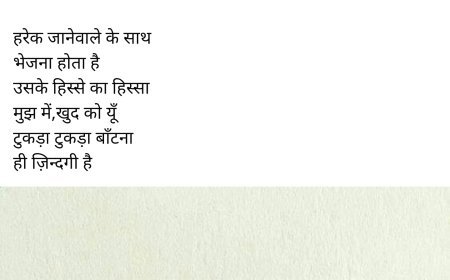 हरेक जानेवाले के साथ
भेजना होता है
उसके हिस्से का हिस्सा
मुझ में,खुद को यूँ
टुकड़ा टुकड़ा बाँटना
ही ज़िन्दगी है